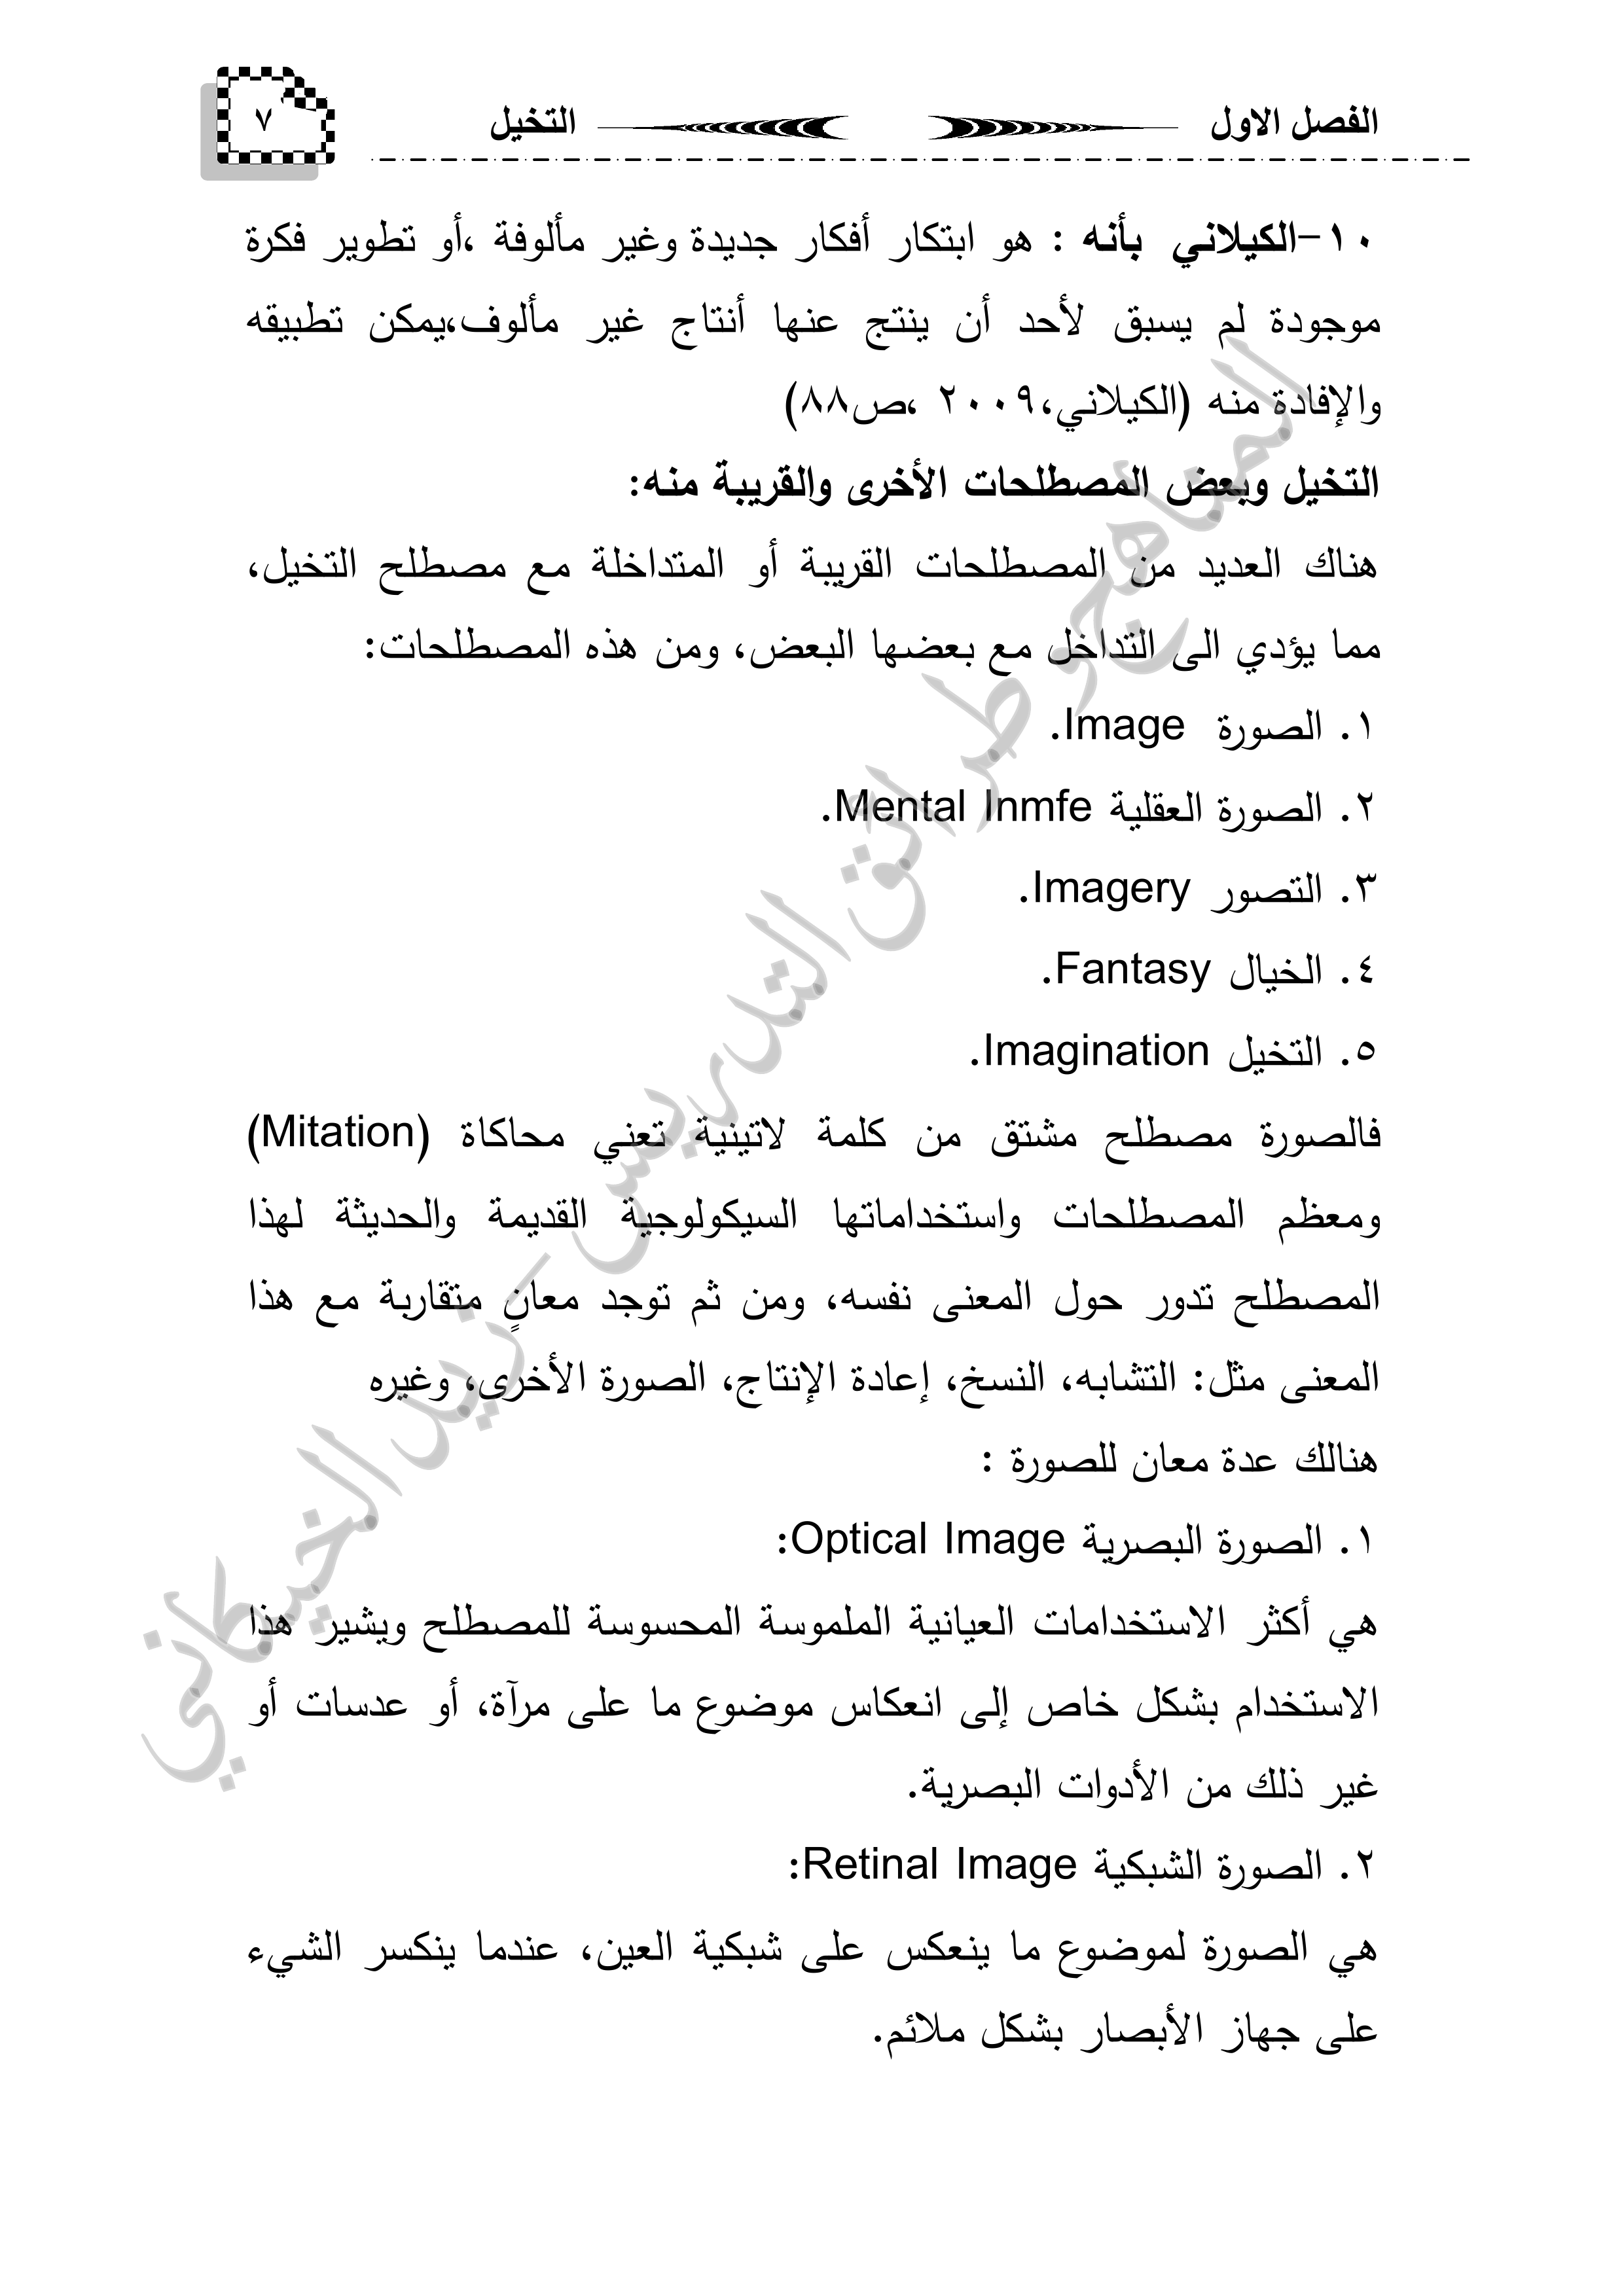 الفصل الاول التخيل ٧
١٠-الكيلاني بأنه : هو ابتكار أفكار جديدة وغير مألوفة ،أو تطوير فكرة
موجودة لم يسبق لأحد أن ينتج عنها أنتاج غير مألوف،يمكن تطبيقه
والإفادة منه (الكيلاني،٢٠٠٩ ،ص٨٨)
التخيل وبعض المصطلحات الأخرى والقريبة منه:
هناك العديد من المصطلحات القريبة أو المتداخلة مع مصطلح التخيل،
مما يؤدي الى التداخل مع بعضها البعض، ومن هذه المصطلحات:
١. الصورة Image.
٢. الصورة العقلية Mental Inmfe.
٣. التصور Imagery.
٤. الخيال Fantasy.
٥. التخيل Imagination.
فالصورة مصطلح مشتق من كلمة لاتينية تعني محاكاة (Mitation)
ومعظم المصطلحات واستخداماتها السيكولوجية القديمة والحديثة لهذا
المصطلح تدور حول المعنى نفسه، ومن ثم توجد معانٍ متقاربة مع هذا
المعنى مثل: التشابه، النسخ، إعادة الإنتاج، الصورة الأخرى، وغيره
هنالك عدة معان للصورة :
١. الصورة البصرية Optical Image:
هي أكثر الاستخدامات العيانية الملموسة المحسوسة للمصطلح ويشير هذا
الاستخدام بشكل خاص إلى انعكاس موضوع ما على مرآة، أو عدسات أو
غير ذلك من الأدوات البصرية.
٢. الصورة الشبكية Retinal Image:
هي الصورة لموضوع ما ينعكس على شبكية العين، عندما ينكسر الشيء
على جهاز الأبصار بشكل ملائم.
المناهج وطرائق التدريس - زيد الخيكاني